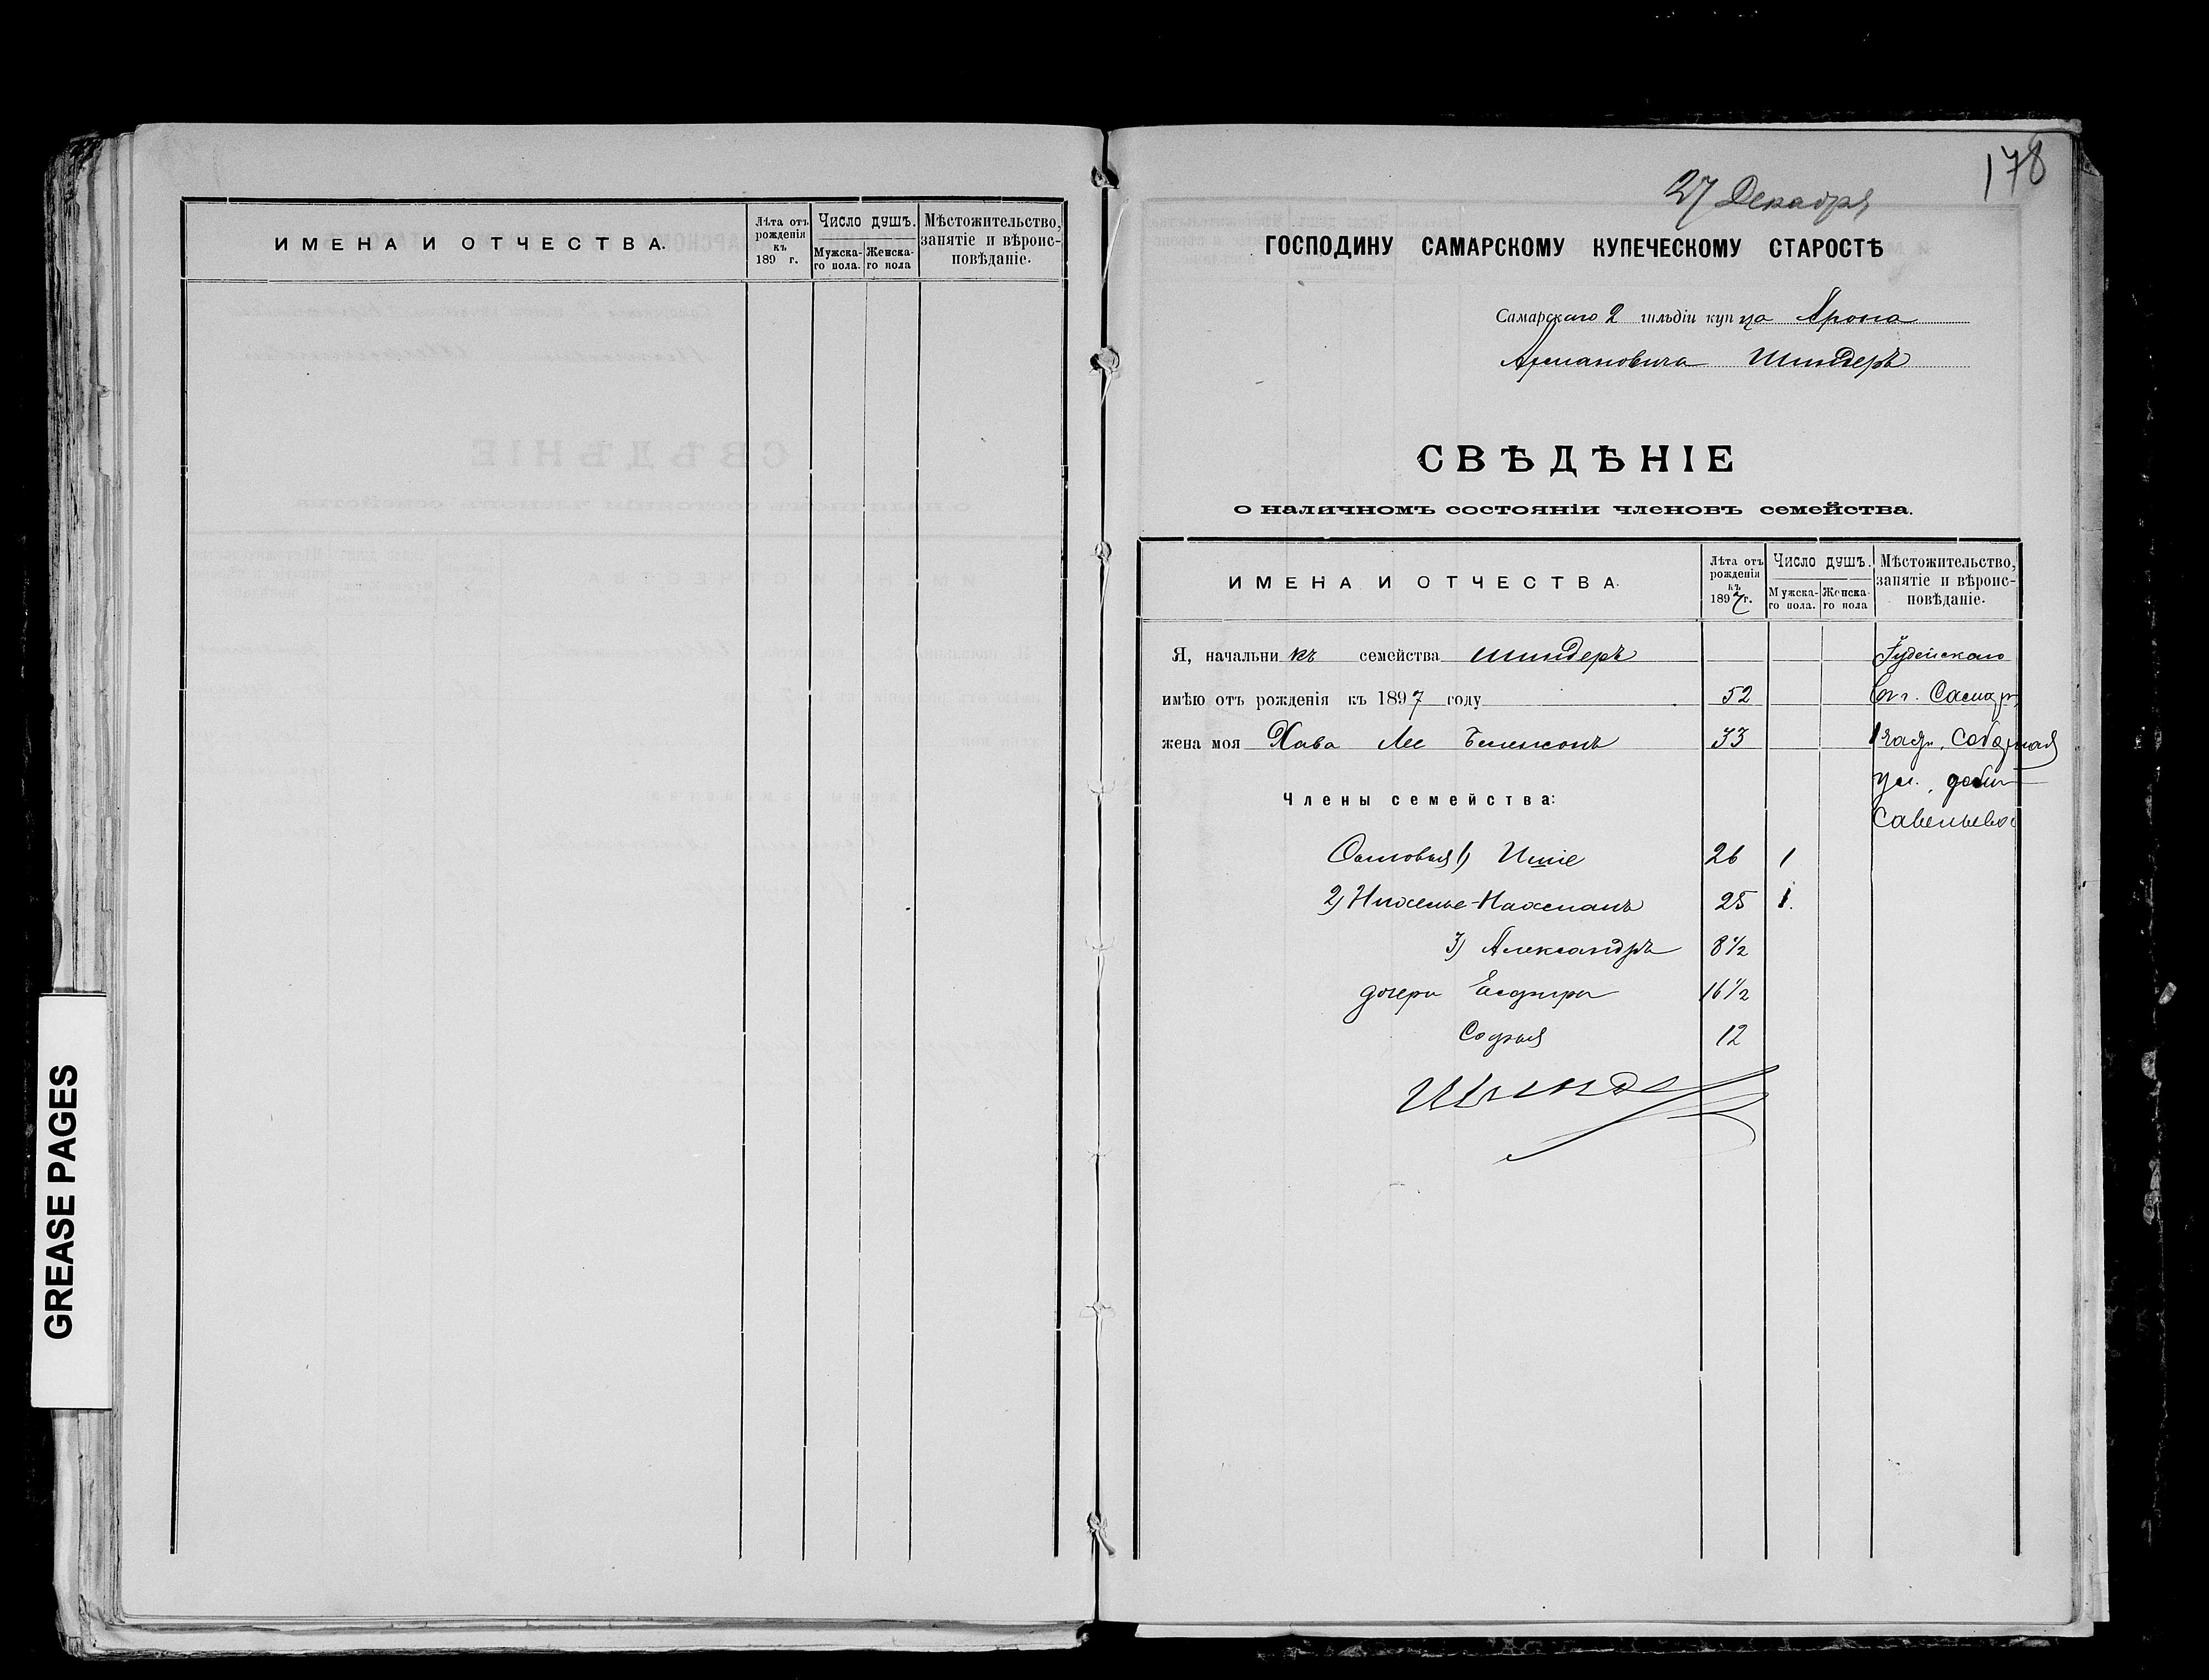 ИМЕНА И ОТЧЕСТВА.
Лѣта отъ рожденія къ 189 г.
Число душъ.
Мужска-го пола.
Женска-го пола
Мѣстожительство, занятіе и вѣроис-повѣданіе.
GREASE PAGES
178
27 Декабря
ГОСПОДИНУ САМАРСКОМУ КУПЕЧЕСКОМУ СТАРОСТѢ
Самарскаго 2 гильдіи купца Арона
Шиндеръ
СВѢДѢНІЕ
о наличномъ состояніи членовъ семейства.
ИМЕНА И ОТЧЕСТВА.
Лѣта отъ рожденія къ 1897 г.
Число душъ.
Мужска-го пола.
Женска-го пола
Мѣстожительство, занятіе и вѣроис-повѣданіе.
Я, начальникъ семейства Шиндеръ Іудейскаго
имѣю отъ рожденія къ 1897 году 52 Самар
жена моя Хава 33 Соборная
ул.
Члены семейства:
Савельева
Сыновья 1) 26 1
2) Нахманъ 25 1.
3) Александръ 8½
дочери Есфирь 16½
Софья 12
Шиндер